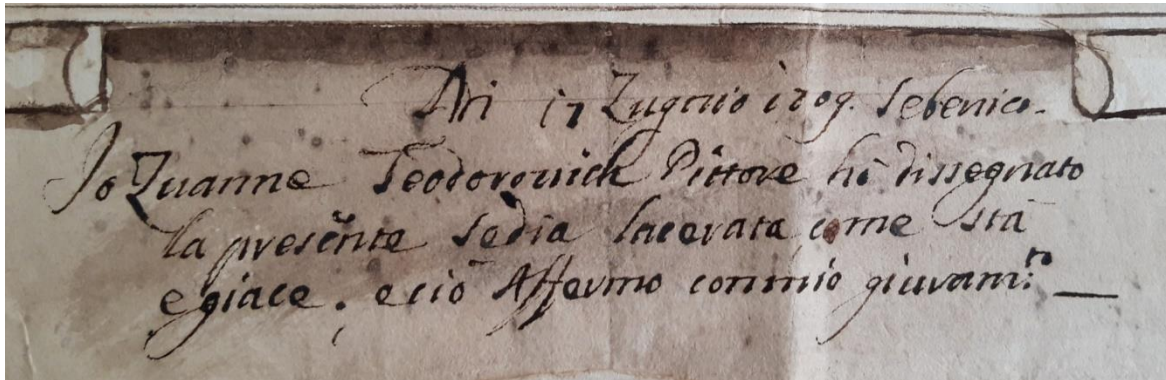 Adi 17 Zugnio 1709. Sebenico.
Io Zuanne Teodorovich Pittore hò dissegnato
la presente sedia lacerata come stà
e giace. e ciò Affermo con mio giuram:to